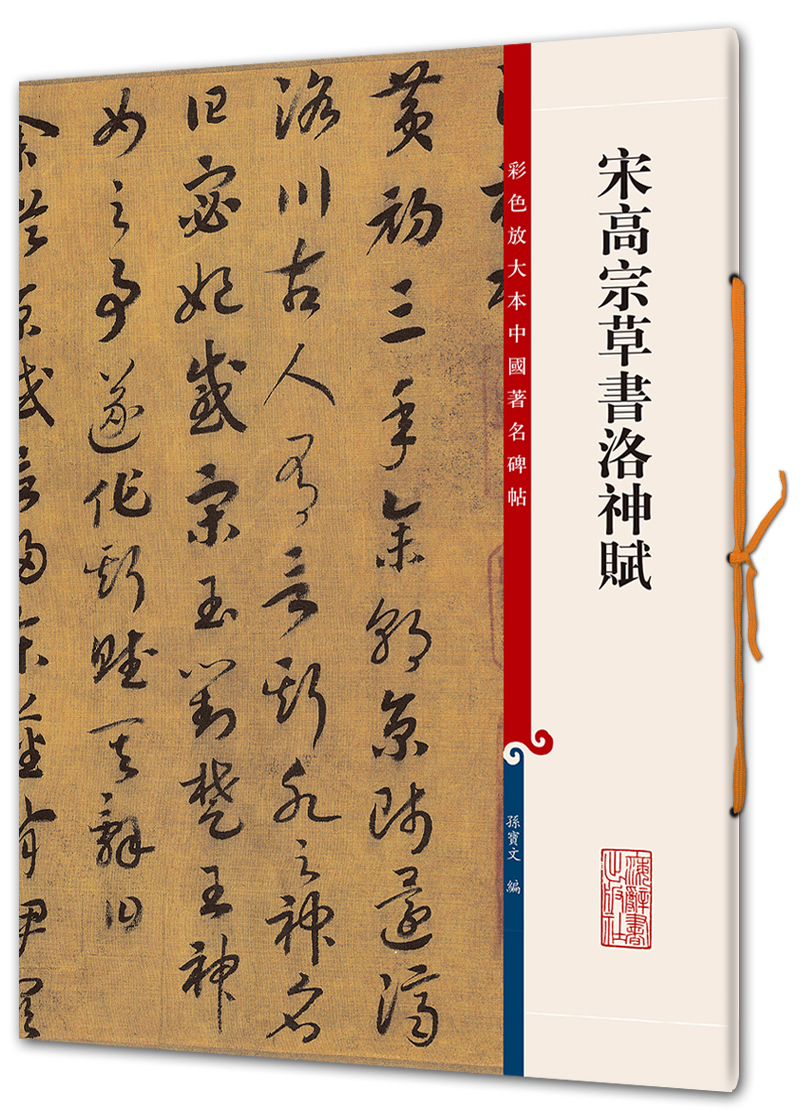 宋高宗草書洛神賦
上海辭書
出版社
彩色放大本中國著名碑帖
孫寶文 編
黃初三年余朝京師還濟
洛川古人有言斯水之神名
曰宓妃感宋玉對楚王神
女之事遂作斯賦其辭曰
余從京域言歸東藩背伊闕